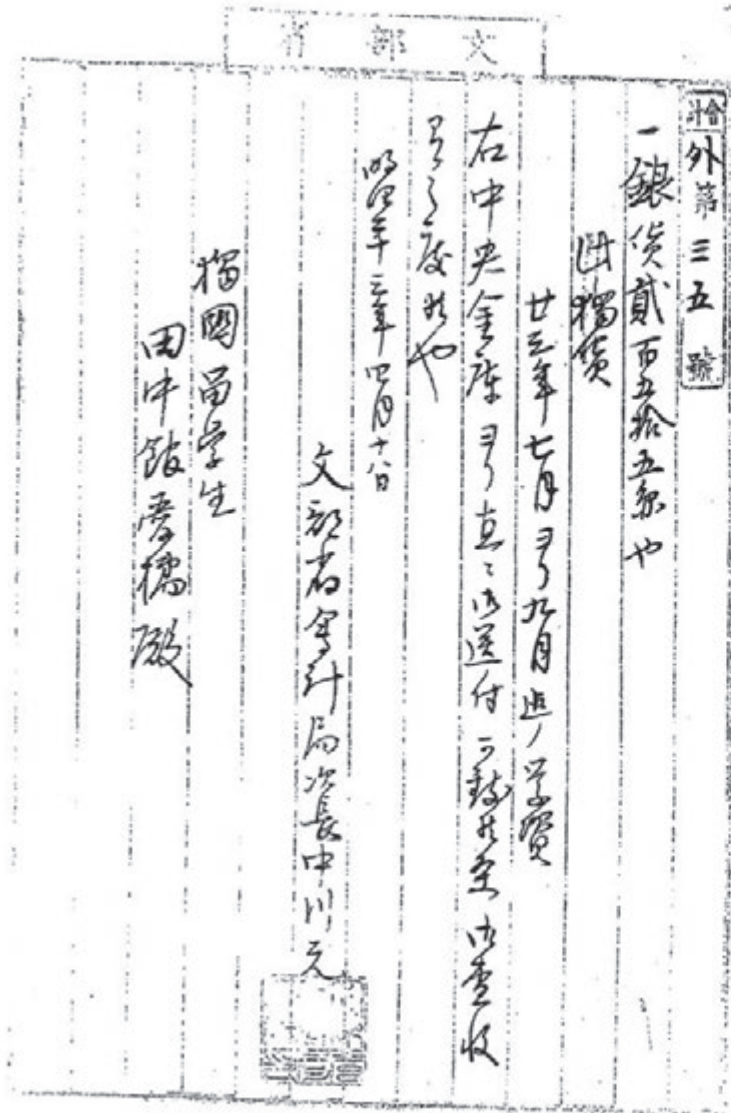 文部省
會計
外第三五號
一銀貨貳百五拾五円也
此獨貨
廿三年七月ヨリ九月迄ノ学資
右中央金庫ヨリ直ニ御送付可致候条御査收
有之度候也
明治廿三年四月十八日
文部省會計局次長中川元
獨國留学生
田中舘愛橘殿